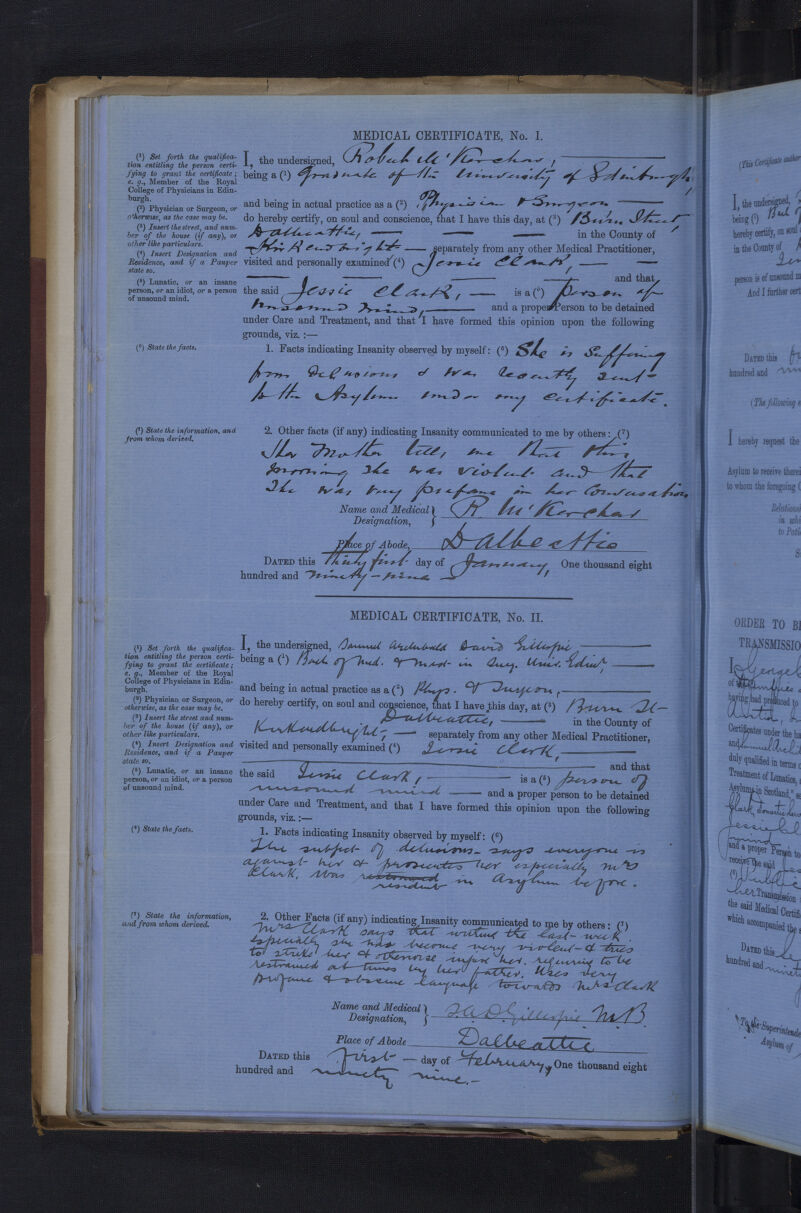 MEDICAL CERTIFICATE, No. I.
(¹) Set forth the qualifica-
tion entitling the person certi-
fying to grant the certificate;
e. g., Member of the Royal
College of Physicians in Edin-
burgh.
(²) Physician or Surgeon, or
otherwise, as the case may be.
(³) Insert the street, and num-
ber of the house (if any), or
other like particulars.
(⁴) Insert Designation and
Residence, and if a Pauper
state so.
(⁵) Lunatic, or an insane
person, or an idiot, or a person
of unsound mind.
I, the undersigned, Robert McKerchar,
being a (¹) graduate of the University of Edinburgh,
and being in actual practice as a (²) Physician & Surgeon
do hereby certify, on soul and conscience, that I have this day, at (³) Burn Street
Dalbeattie, in the County of
Kirkcudbright separately from any other Medical Practitioner,
visited and personally examined (⁴) Jessie Clark,
and that
the said Jessie Clark, is a (⁵) person of
unsound mind, and a proper Person to be detained
under Care and Treatment, and that I have formed this opinion upon the following
grounds, viz. :—
(⁶) State the facts.
1. Facts indicating Insanity observed by myself: (⁶) She is Suffering
from Delusions & was recently sent
to the Asylum under my certificate.
(⁷) State the information, and
from whom derived.
2. Other facts (if any) indicating Insanity communicated to me by others: (⁷)
Her Mother tells me that this
morning she was violent and that
She was very profane in her Conversation
Name and Medical Designation, R McKerchar
Place of Abode, Dalbeattie
DATED this thirty first day of January, One thousand eight
hundred and ninety-nine
MEDICAL CERTIFICATE, No. II.
(¹) Set forth the qualifica-
tion entitling the person certi-
fying to grant the certificate;
e. g., Member of the Royal
College of Physicians in Edin-
burgh.
(²) Physician or Surgeon, or
otherwise, as the case may be.
(³) Insert the street and num-
ber of the house (if any), or
other like particulars.
(⁴) Insert Designation and
Residence, and if a Pauper
state so.
(⁵) Lunatic, or an insane
person, or an idiot, or a person
of unsound mind.
I, the undersigned, Samuel Archibald David Gillespie,
being a (¹) Bach of Med. & Mast- in Surg. Univ. Edinr
and being in actual practice as a (²) Phys. & Surgeon,
do hereby certify, on soul and conscience, that I have this day, at (³) Burn St-
Dalbeattie, in the County of
Kirkcudbright, separately from any other Medical Practitioner,
visited and personally examined (⁴) Jessie Clark,
and that
the said Jessie Clark, is a (⁵) person of
unsound mind and a proper person to be detained
under Care and Treatment, and that I have formed this opinion upon the following
grounds, viz. :—
(⁶) State the facts.
1. Facts indicating Insanity observed by myself: (⁶)
The subject of delusions- says everyone is
against her & prosecutes her especially Mrs
Clark. Was resident in Asylum before.
(⁷) State the information,
and from whom derived.
2. Other Facts (if any) indicating Insanity communicated to me by others: (⁷)
Mrs Clark says that within the last week
especially she has become very violent & tries
to strike her & otherwise injure her. requiring to be
restrained at times by her father. Uses very
profane & obscene language towards Mrs Clark
Name and Medical Designation, S A D Gillespie M.B.
Place of Abode Dalbeattie
DATED this First day of February, One thousand eight
hundred and ninety nine.-
I, the undersigned,
being (¹)
hereby certify, on soul
in the County of
person is of unsound
And I further
DATED this
hundred and
I hereby request the
Asylum to receive
to whom the foregoing
ORDER TO
TRANSMISSIO
having had produced to
Certificates under the
duly qualified in terms
Treatment of Lunatics,
Asylums in Scotland,
and a proper Person
receive the said
Transmission
the said Medical
which accompanied the
DATED this
hundred and
Asylum of